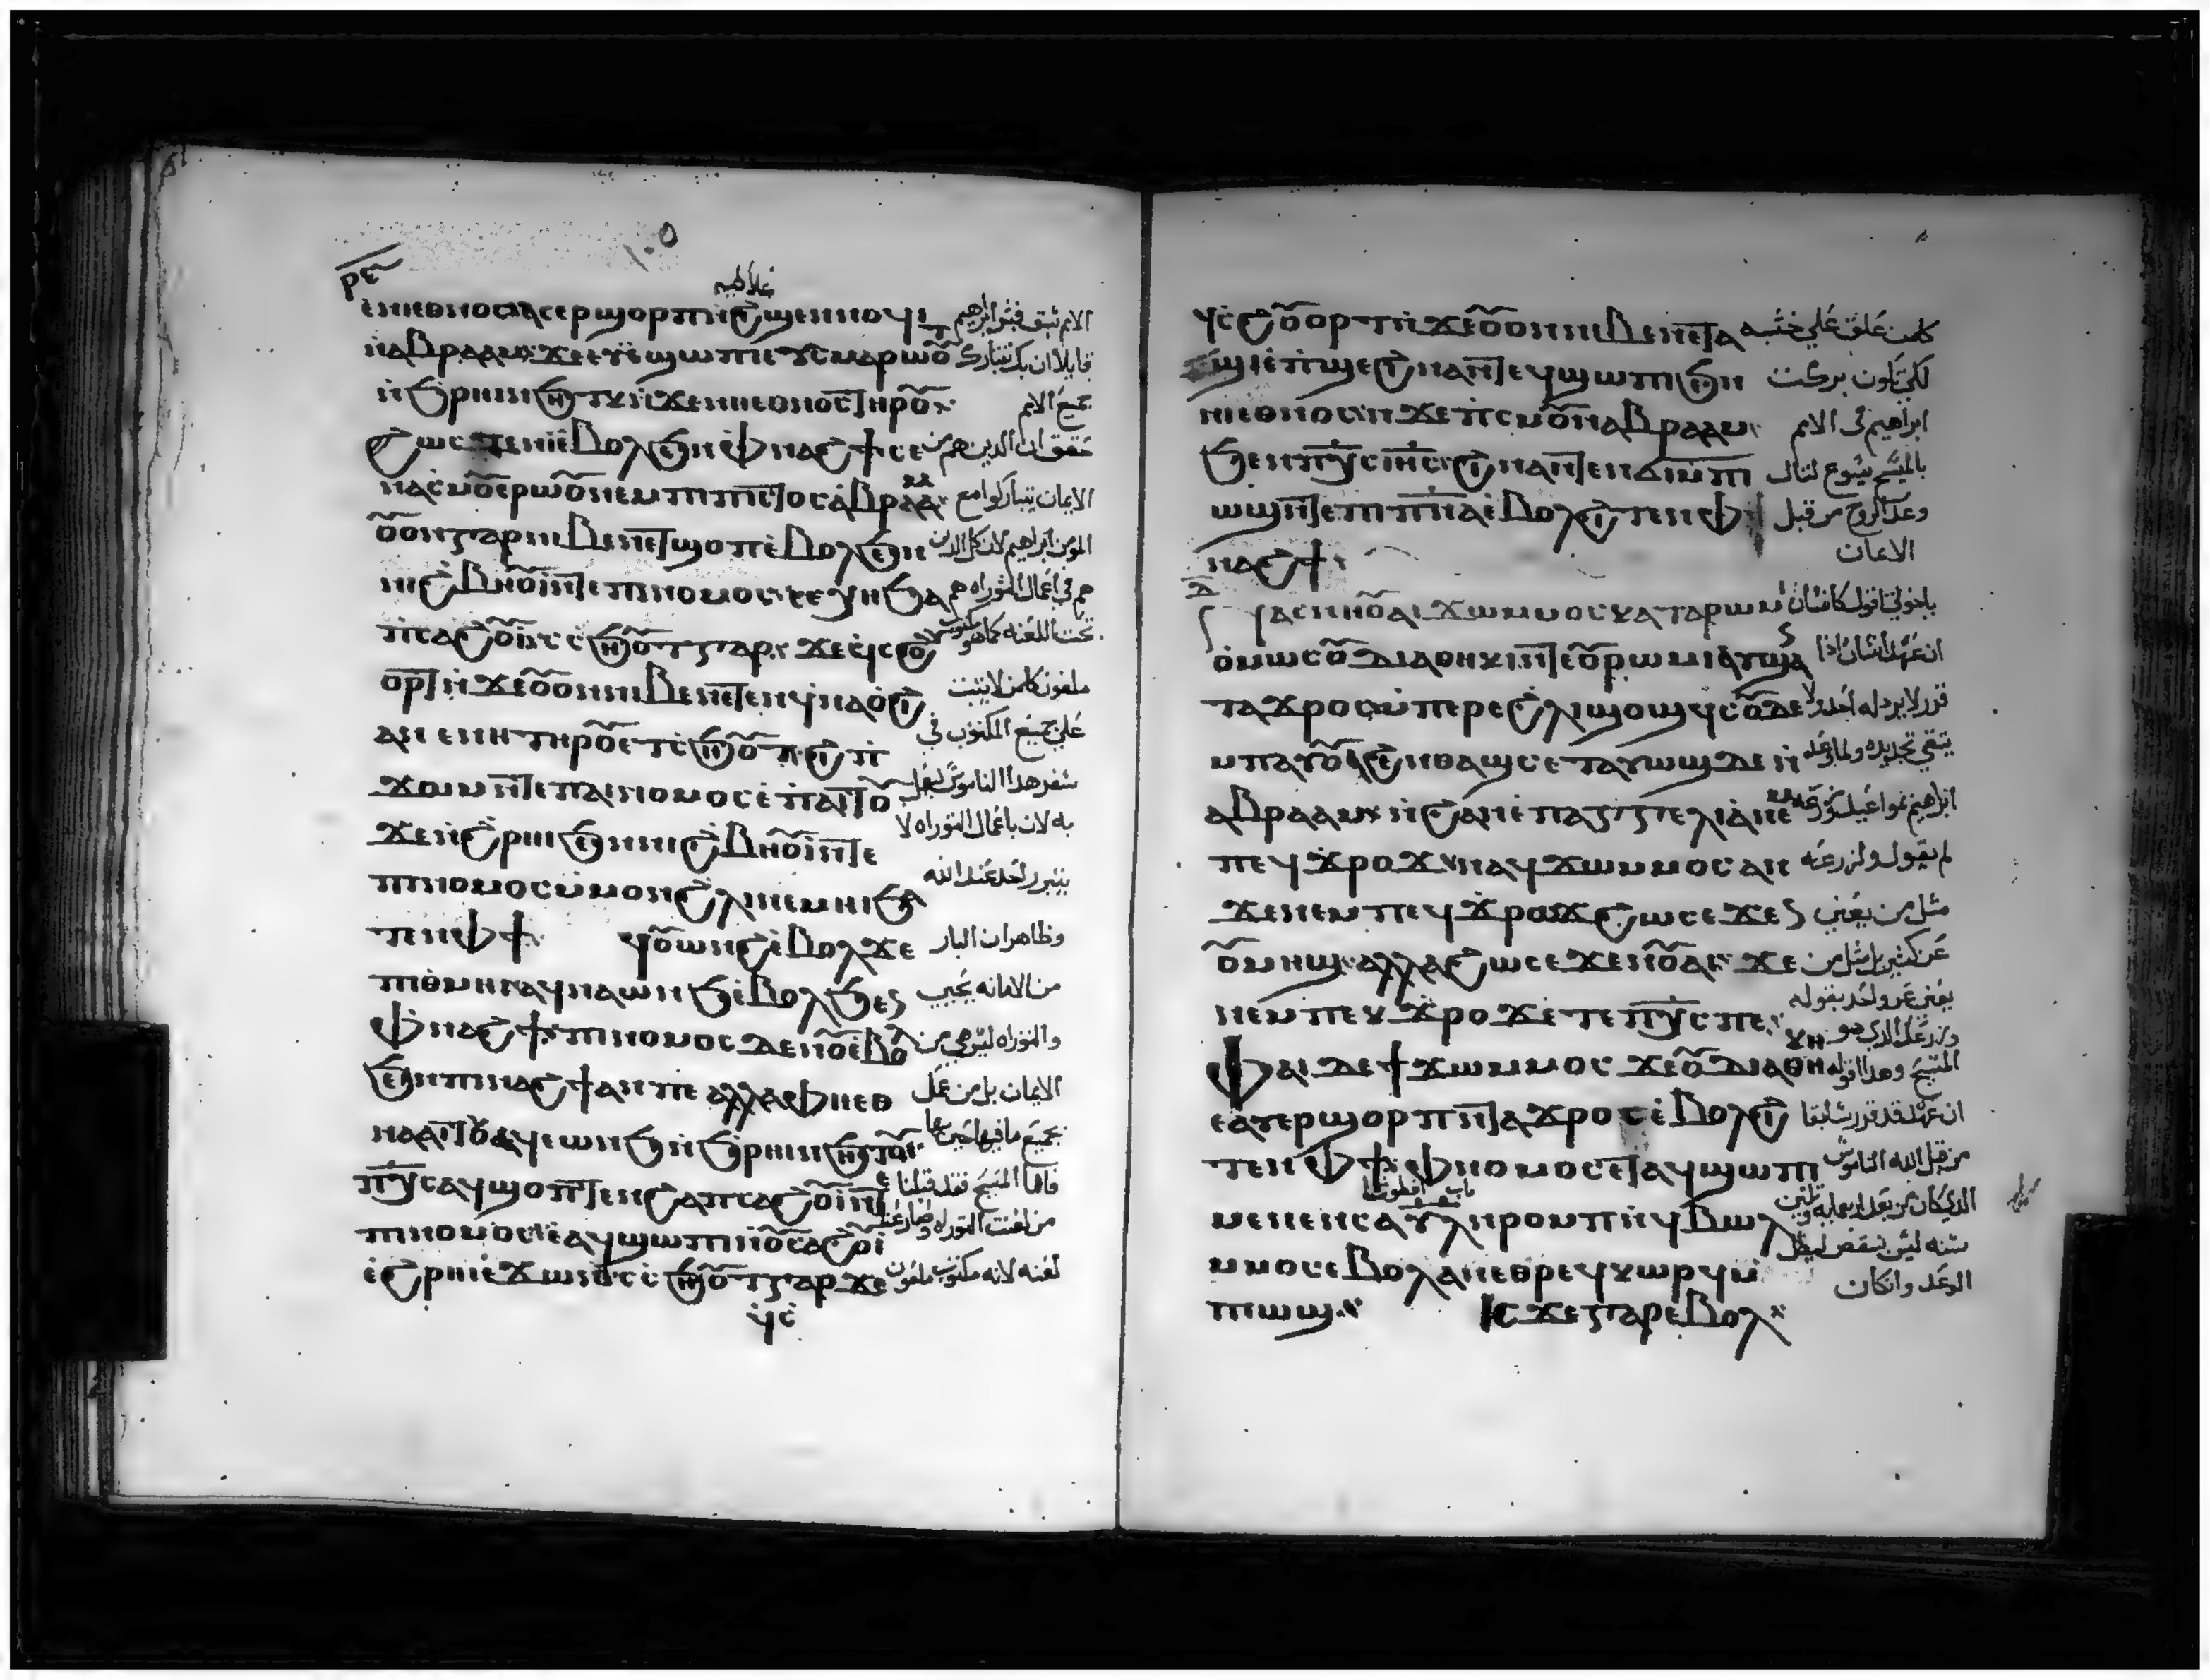 ⲣⲉ
١٠٥
غلاطيه
ⲉⲛⲓⲉⲑⲛⲟⲥ ⲁⲥⲉⲣϣⲟⲣⲡ ⲛϩⲓϣⲉⲛⲛⲟⲩϥⲓ الامم سبق فبشر ابراهيم
ⲛⲁⲃⲣⲁⲁⲙ ϫⲉ ⲉⲩⲉϣⲱⲡⲓ ⲉⲩⲥⲙⲁⲣⲱⲟⲩ قايلا ان بك تتبارك
ⲛϧⲣⲏⲓ ⲛϧⲏⲧⲕ ⲛϫⲉ ⲛⲓⲉⲑⲛⲟⲥ ⲧⲏⲣⲟⲩ جميع الامم
ϩⲱⲥⲧⲉ ⲛⲓⲉⲃⲟⲗϧⲉⲛ ⲫⲛⲁϩϯ ⲥⲉ ان الدين هم من
ⲛⲁⲥⲙⲟⲩ ⲉⲣⲱⲟⲩ ⲛⲉⲙ ⲡⲓⲡⲓⲥⲧⲟⲥ ⲁⲃⲣⲁⲁⲙ الايمان يتباركوا مع
ⲟⲩⲟⲛ ⲅⲁⲣ ⲛⲓⲃⲉⲛ ⲉⲧϣⲟⲡ ⲉⲃⲟⲗϧⲉⲛ المومن ابراهيم لان كل الدين
ⲛⲓϩⲃⲏⲟⲩⲓ ⲛⲧⲉ ⲡⲓⲛⲟⲙⲟⲥ ⲥⲉⲭⲏ ϧⲁ هم في اعمال التوراه هم
ⲡⲥⲁϩⲟⲩⲓ ⲥⲥϧⲏⲟⲩⲧ ⲅⲁⲣ ϫⲉ ϥⲥϩⲟ تحت اللعنه كما هو مكتوب
ⲟⲩⲟⲣⲧ ⲛϫⲉ ⲟⲩⲟⲛ ⲛⲓⲃⲉⲛ ⲉⲧⲉⲛϥⲛⲁⲟϩⲓ ملعون كلمن لا يثبت
ⲁⲛ ⲉⲛⲏ ⲧⲏⲣⲟⲩ ⲉⲧⲥϧⲏⲟⲩⲧ ϩⲓ ⲡ علي جميع المكتوب في
ϫⲱⲙ ⲛⲧⲉ ⲡⲁⲓⲛⲟⲙⲟⲥ ⲉⲡⲁⲓⲧⲟⲩ سفر هدا الناموس ليعمل
ϫⲉ ⲛϩⲣⲏⲓ ϧⲉⲛ ⲛⲓϩⲃⲏⲟⲩⲓ ⲛⲧⲉ به لان باعمال التوراه لا
ⲡⲓⲛⲟⲙⲟⲥ ⲙⲙⲟⲛ ϩⲗⲓ ⲉⲙⲁⲓ ϧⲁ يتبرر احد عند الله
ⲧⲉⲛ ⲫϯ ϥⲟⲩⲱⲛϩ ⲉⲃⲟⲗ ϫⲉ وظاهر ان البار
ⲡⲓⲑⲙⲏⲓ ⲁϥⲛⲁⲱⲛϧ ⲉⲃⲟⲗϧⲉⲛ من الامانه يحيي
ⲫⲛⲁϩϯ ⲡⲓⲛⲟⲙⲟⲥ ⲇⲉ ⲛⲟⲩⲉⲃⲟⲗ والتوراه ليس هي من
ϧⲉⲛ ⲡⲓⲛⲁϩϯ ⲁⲛ ⲡⲉ ⲁⲗⲗⲁ ⲫⲏⲉⲑ الايمان بل من عمل
ⲛⲁⲁⲓⲧⲟⲩ ⲉϥⲉⲱⲛϧ ⲛϧⲣⲏⲓ ⲛϧⲏⲧⲟⲩ بجميع ما فيها حيي بها
ⲡⲭⲥ ⲁϥϣⲟⲡⲧⲉⲛ ϩⲁ ⲡⲥⲁϩⲟⲩⲓ ⲛⲧⲉ فاما المسيح فقد قبلنا
ⲡⲓⲛⲟⲙⲟⲥ ⲉⲁϥϣⲱⲡⲓ ⲛⲟⲩⲥⲁϩⲟⲩⲓ من لعنت التوراه وصار عنا
ⲉϩⲣⲏⲓ ⲉϫⲱⲛ ⲥⲥϧⲏⲟⲩⲧ ⲅⲁⲣ ϫⲉ لعنه لانه مكتوب ملعون
ϥⲥ
ϥⲥϩⲟⲩⲟⲣⲧ ⲛϫⲉ ⲟⲩⲟⲛ ⲛⲓⲃⲉⲛ ⲉⲧⲁ كلمن علق علي خشبه
ϣⲓ ⲉⲡϣⲉ ϩⲓⲛⲁ ⲛⲧⲉϥϣⲱⲡⲓ ϧⲉⲛ لكي تكون بركت
ⲛⲓⲉⲑⲛⲟⲥ ⲛϫⲉ ⲡⲥⲙⲟⲩ ⲛⲁⲃⲣⲁⲁⲙ ابراهيم في الامم
ϧⲉⲛ ⲡⲭⲥ ⲓⲏⲥ ϩⲓⲛⲁ ⲛⲧⲉⲛϭⲓ ⲙⲡⲓ بالمسيح يسوع لننال
ⲱϣ ⲛⲧⲉ ⲡⲓⲡⲛⲁ ⲉⲃⲟⲗϩⲓⲧⲉⲛ ⲫ وعد الروح من قبل
ⲛⲁϩϯ الايمان
ⲛⲁⲥⲛⲏⲟⲩ ⲁⲓϫⲱ ⲙⲙⲟⲥ ⲕⲁⲧⲁ ⲣⲱⲙⲓ يا خوتي اقول كانسان
ⲟⲙⲱⲥ ⲟⲩⲇⲓⲁⲑⲏⲕⲏ ⲛⲧⲉ ⲟⲩⲣⲱⲙⲓ ⲁⲩϣⲁⲛ ان عهد انسان اذا
ⲧⲁϫⲣⲟⲥ ⲙⲡⲉⲣⲉ ϩⲗⲓ ϣⲟϣϥⲥ ⲟⲩⲇⲉ قرر لا يردله احد ولا
ⲙⲡⲁⲩⲟⲩⲁϩⲉⲙ ⲑⲁϣⲥ ⲉⲧⲁⲩⲱϣ ⲇⲉ ⲛ
ⲁⲃⲣⲁⲁⲙ ⲛϩⲁⲛⲉⲡⲁⲅⲅⲉⲗⲓⲁ ⲛⲉⲙ
ⲡⲉϥϫⲣⲟϫ ⲛⲁϥϫⲱ ⲙⲙⲟⲥ ⲁⲛ لم يقول ولزرعه
ϫⲉ ⲛⲉⲙ ⲡⲉϥϫⲣⲟϫ ϩⲱⲥ ⲉϫⲉⲛ مثل من يعني
ⲟⲩⲙⲏϣ ⲁⲗⲗⲁ ϩⲱⲥ ⲉϫⲉⲛ ⲟⲩⲁⲓ ϫⲉ عن كثير بل مثل من
ⲛⲉⲙ ⲡⲉⲕϫⲣⲟϫ ⲉⲧⲉ ⲡⲭⲥ ⲡⲉ يعني عن واحد بقوله
ولزرعك الدي هو
ⲫⲁⲓ ⲇⲉ ϯϫⲱ ⲙⲙⲟⲥ ϫⲉ ⲟⲩⲇⲓⲁⲑⲏⲕⲏ المسيح وهدا اقوله
ⲉⲁⲩⲉⲣϣⲟⲣⲡ ⲛⲧⲁϫⲣⲟⲥ ⲉⲃⲟⲗϩⲓ ان عهد قد قرر سابقا
ⲧⲉⲛ ⲫϯ ⲫⲛⲟⲙⲟⲥ ⲉⲧⲁϥϣⲱⲡⲓ من قبل الله الناموس
ⲙⲉⲛⲉⲛⲥⲁ ⲩⲗ ⲛⲣⲟⲙⲡⲓ ⲛϥⲃⲱⲗ الدي كان من بعد اربعمايه وتلتين
ⲙⲙⲟⲥ ⲉⲃⲟⲗ ⲁⲛ ⲉⲑⲣⲉϥⲕⲱⲣϥ ⲙ سنه ليس ينقض ليبطل
ⲡⲓⲱϣ ⲓⲥϫⲉ ⲅⲁⲣ ⲉⲃⲟⲗ الوعد وان كان